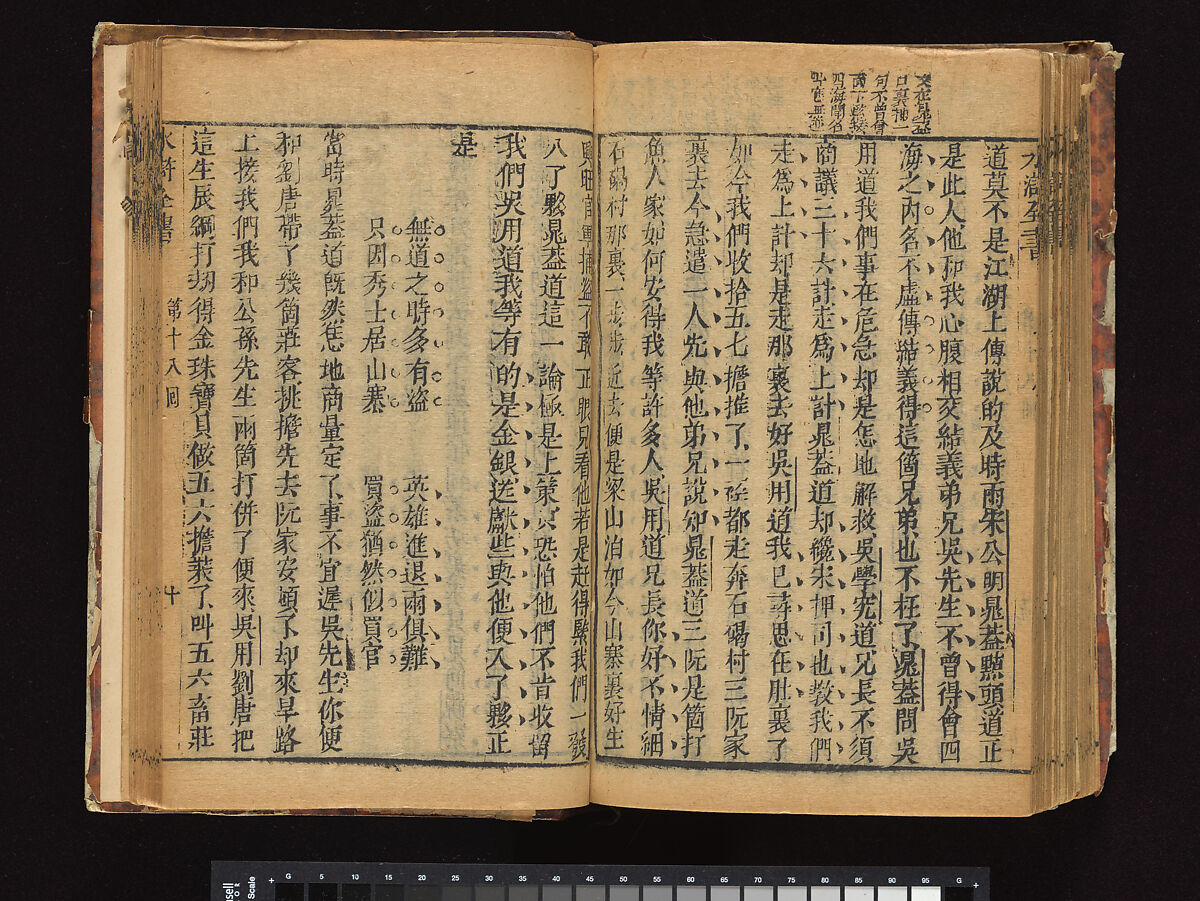 水滸全書
文在晁蓋
口裏抻一
句不曾會
四海聞名
道莫不是江湖上傳說的及時雨宋公明晁蓋㸃頭道正
是此人他和我心腹相交結義弟兄吳先生不曾得會四
海之內名不虛傳結義得這箇兄弟也不枉了晁蓋問吳
用道我們事在危急却是怎地解救吳學究道兄長不須
商議三十六計走爲上計晁蓋道却纔宋押司也教我們
走爲上計却是走那裏去好吳用道我已尋思在肚裏了
如今我們收拾五七擔推了一徑都走奔石碣村三阮家
裏去今急遣一人先與他弟兄說知晁蓋道三阮是箇打
魚人家如何安得我等許多人吳用道兄長你好不情細
石碣村那裏一步步近去便是梁山泊如今山寨裏好生
興旺官軍捕盜不敢正眼兒看他若是赶得緊我們一發
入了夥晁蓋道這一論極是上策只恐怕他們不肯收留
我們吳用道我等有的是金銀送獻些與他便入了夥正
是
無道之時多有盜 英雄進退兩俱難
只因秀士居山寨 買盜猶然似買官
當時晁蓋道既然恁地商量定了事不宜遲吳先生你便
和劉唐帶了幾箇莊客挑擔先去阮家安頓了却來旱路
上接我們我和公孫先生兩箇打併了便來吳用劉唐把
這生辰綱打刼得金珠寶貝做五六擔裝了叫五六畜莊
水滸全書 第十八回 十
G 5 10 15 20 25 30 35 40 45 50 55 60 65 70 75 80 85 90 95 G
Scale